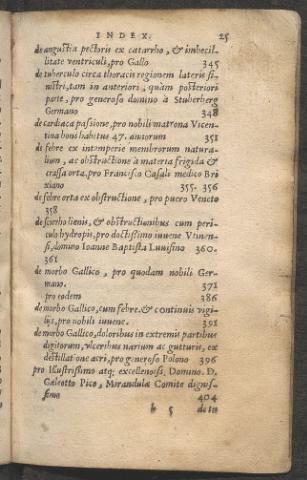 INDEX. 25
de angustia pectoris ex catarrho, & imbecil-
litate ventriculi, pro Gallo 345
de tuberculo circa thoracis regionem lateris si-
nistri, tam in anteriori, quàm posteriori
parte, pro generoso domino à Stuberberg
Germano 348
de cardiaca passione, pro nobili matrona Vicen-
tina boni habitus 47. annorum 351
de febre ex intemperie membrorum natura-
lium, ac obstructione à materia frigida &
crassa orta, pro Francisco Casuli medico Bri
xiano 355. 356
de febre orta ex obstructione, pro puero Veneto
358
de scirrho lienis, & obstructionibus cum peri-
culo hydropis, pro doctissimo iuvene Utinen-
si, domino Ioanne Baptista Luvisino 360.
361
de morbo Gallico, pro quodam nobili Ger-
mano. 371
pro eodem 386
de morbo Gallico, cum febre & continuis vigi-
lijs, pro nobili iuvene. 391
de morbo Gallico, doloribus in extremis partibus
digitorum, ulceribus narium ac gutturis, ex
destillatione acri, pro generoso Polono 396
pro Illustrissimo atq; excellentiss. Domino. D.
Galeotto Pico, Mirandulæ Comite dignis-
simo 404
b 5 de in